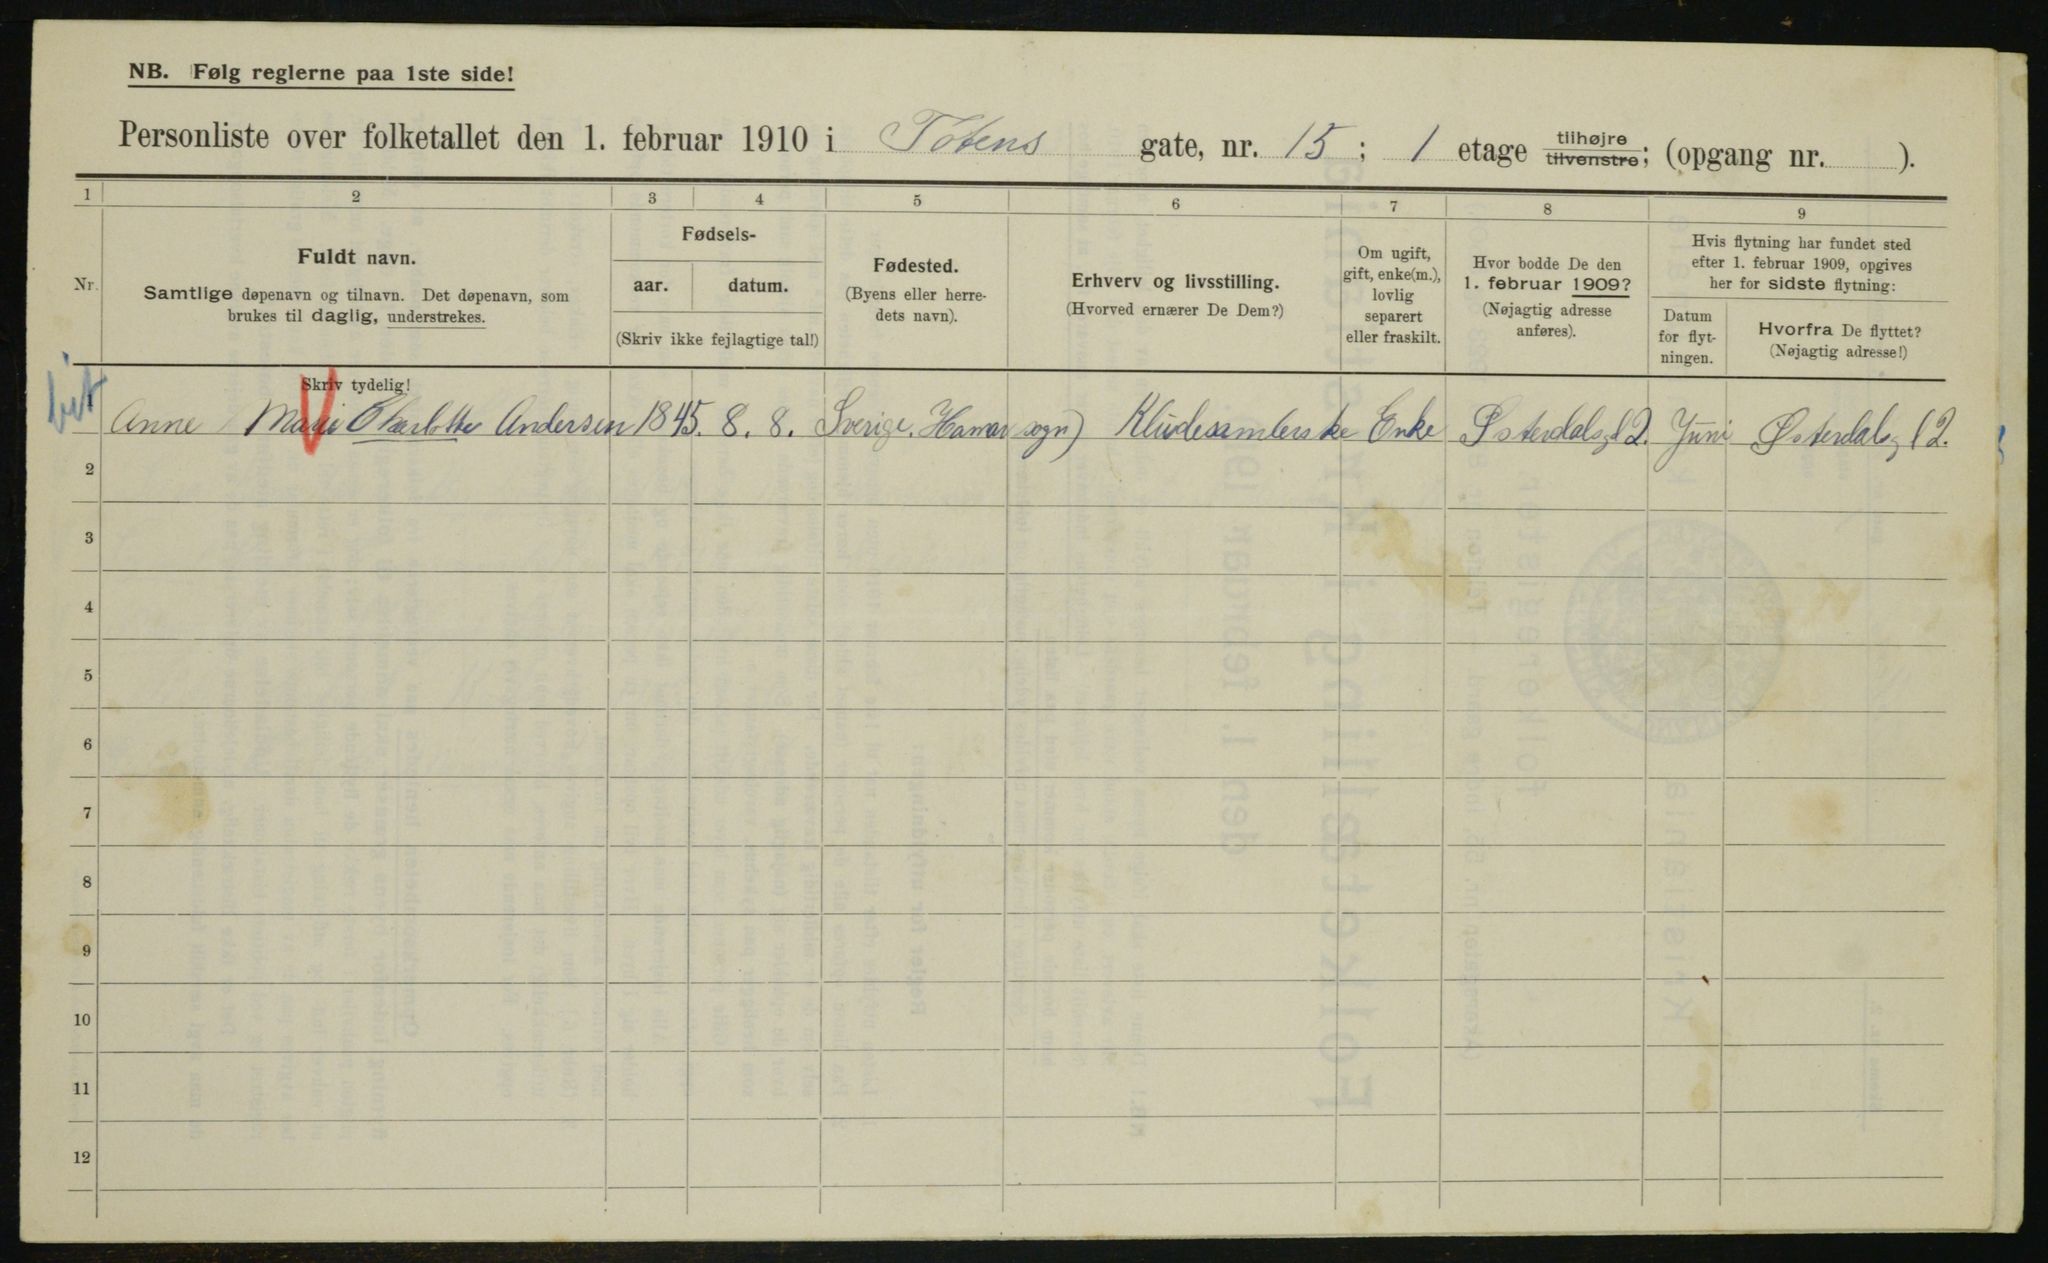 NB. Følg reglerne paa 1ste side!
Personliste over folketallet den 1. februar 1910 i Totens gate, nr. 15; 1 etage tilhøjre tilvenstre; (opgang nr. ).
1 2 3 4 5 6 7 8 9
Nr.
Fuldt navn.
Samtlige døpenavn og tilnavn. Det døpenavn, som
brukes til daglig, understrekes.
Fødsels-
aar. datum.
(Skriv ikke fejlagtige tal!)
Fødested.
(Byens eller herre-
dets navn).
Erhverv og livsstilling.
(Hvorved ernærer De Dem?)
Om ugift,
gift, enke(m.),
lovlig
separert
eller fraskilt.
Hvor bodde De den
1. februar 1909?
(Nøjagtig adresse
anføres).
Hvis flytning har fundet sted
efter 1. februar 1909, opgives
her for sidste flytning:
Datum
for flyt-
ningen.
Hvorfra De flyttet?
(Nøjagtig adresse!)
Skriv tydelig!
1 Anne Marie Charlotte Andersen 1845. 8. 8. Sverige. Hamar sogn) Kludesamlerske Enke Østerdalsg 12. Juni Østerdalsg 12.
2
3
4
5
6
7
8
9
10
11
12